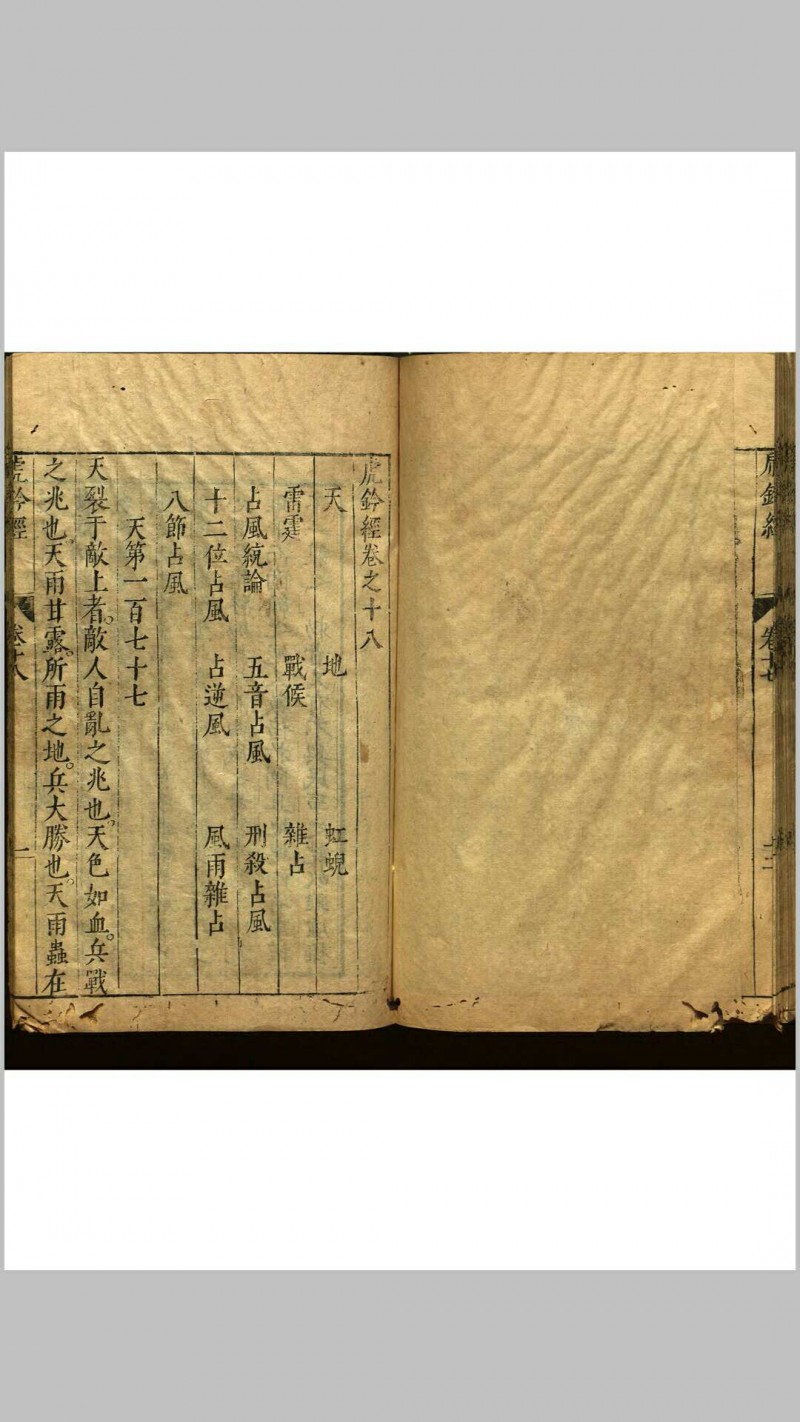 虎鈐經
卷十七
十二
虎鈐經卷之十八
天 地 虹蜺
雷霆 戰候 雜占
占風統論 五音占風 刑殺占風
十二位占風 占逆風 風雨雜占
八節占風
天第一百七十七
天裂于敵上者。敵人自亂之兆也。天色如血。兵戰
之兆也。天雨甘露。所雨之地。兵大勝也。天雨蟲在
虎鈐經
卷十八
一